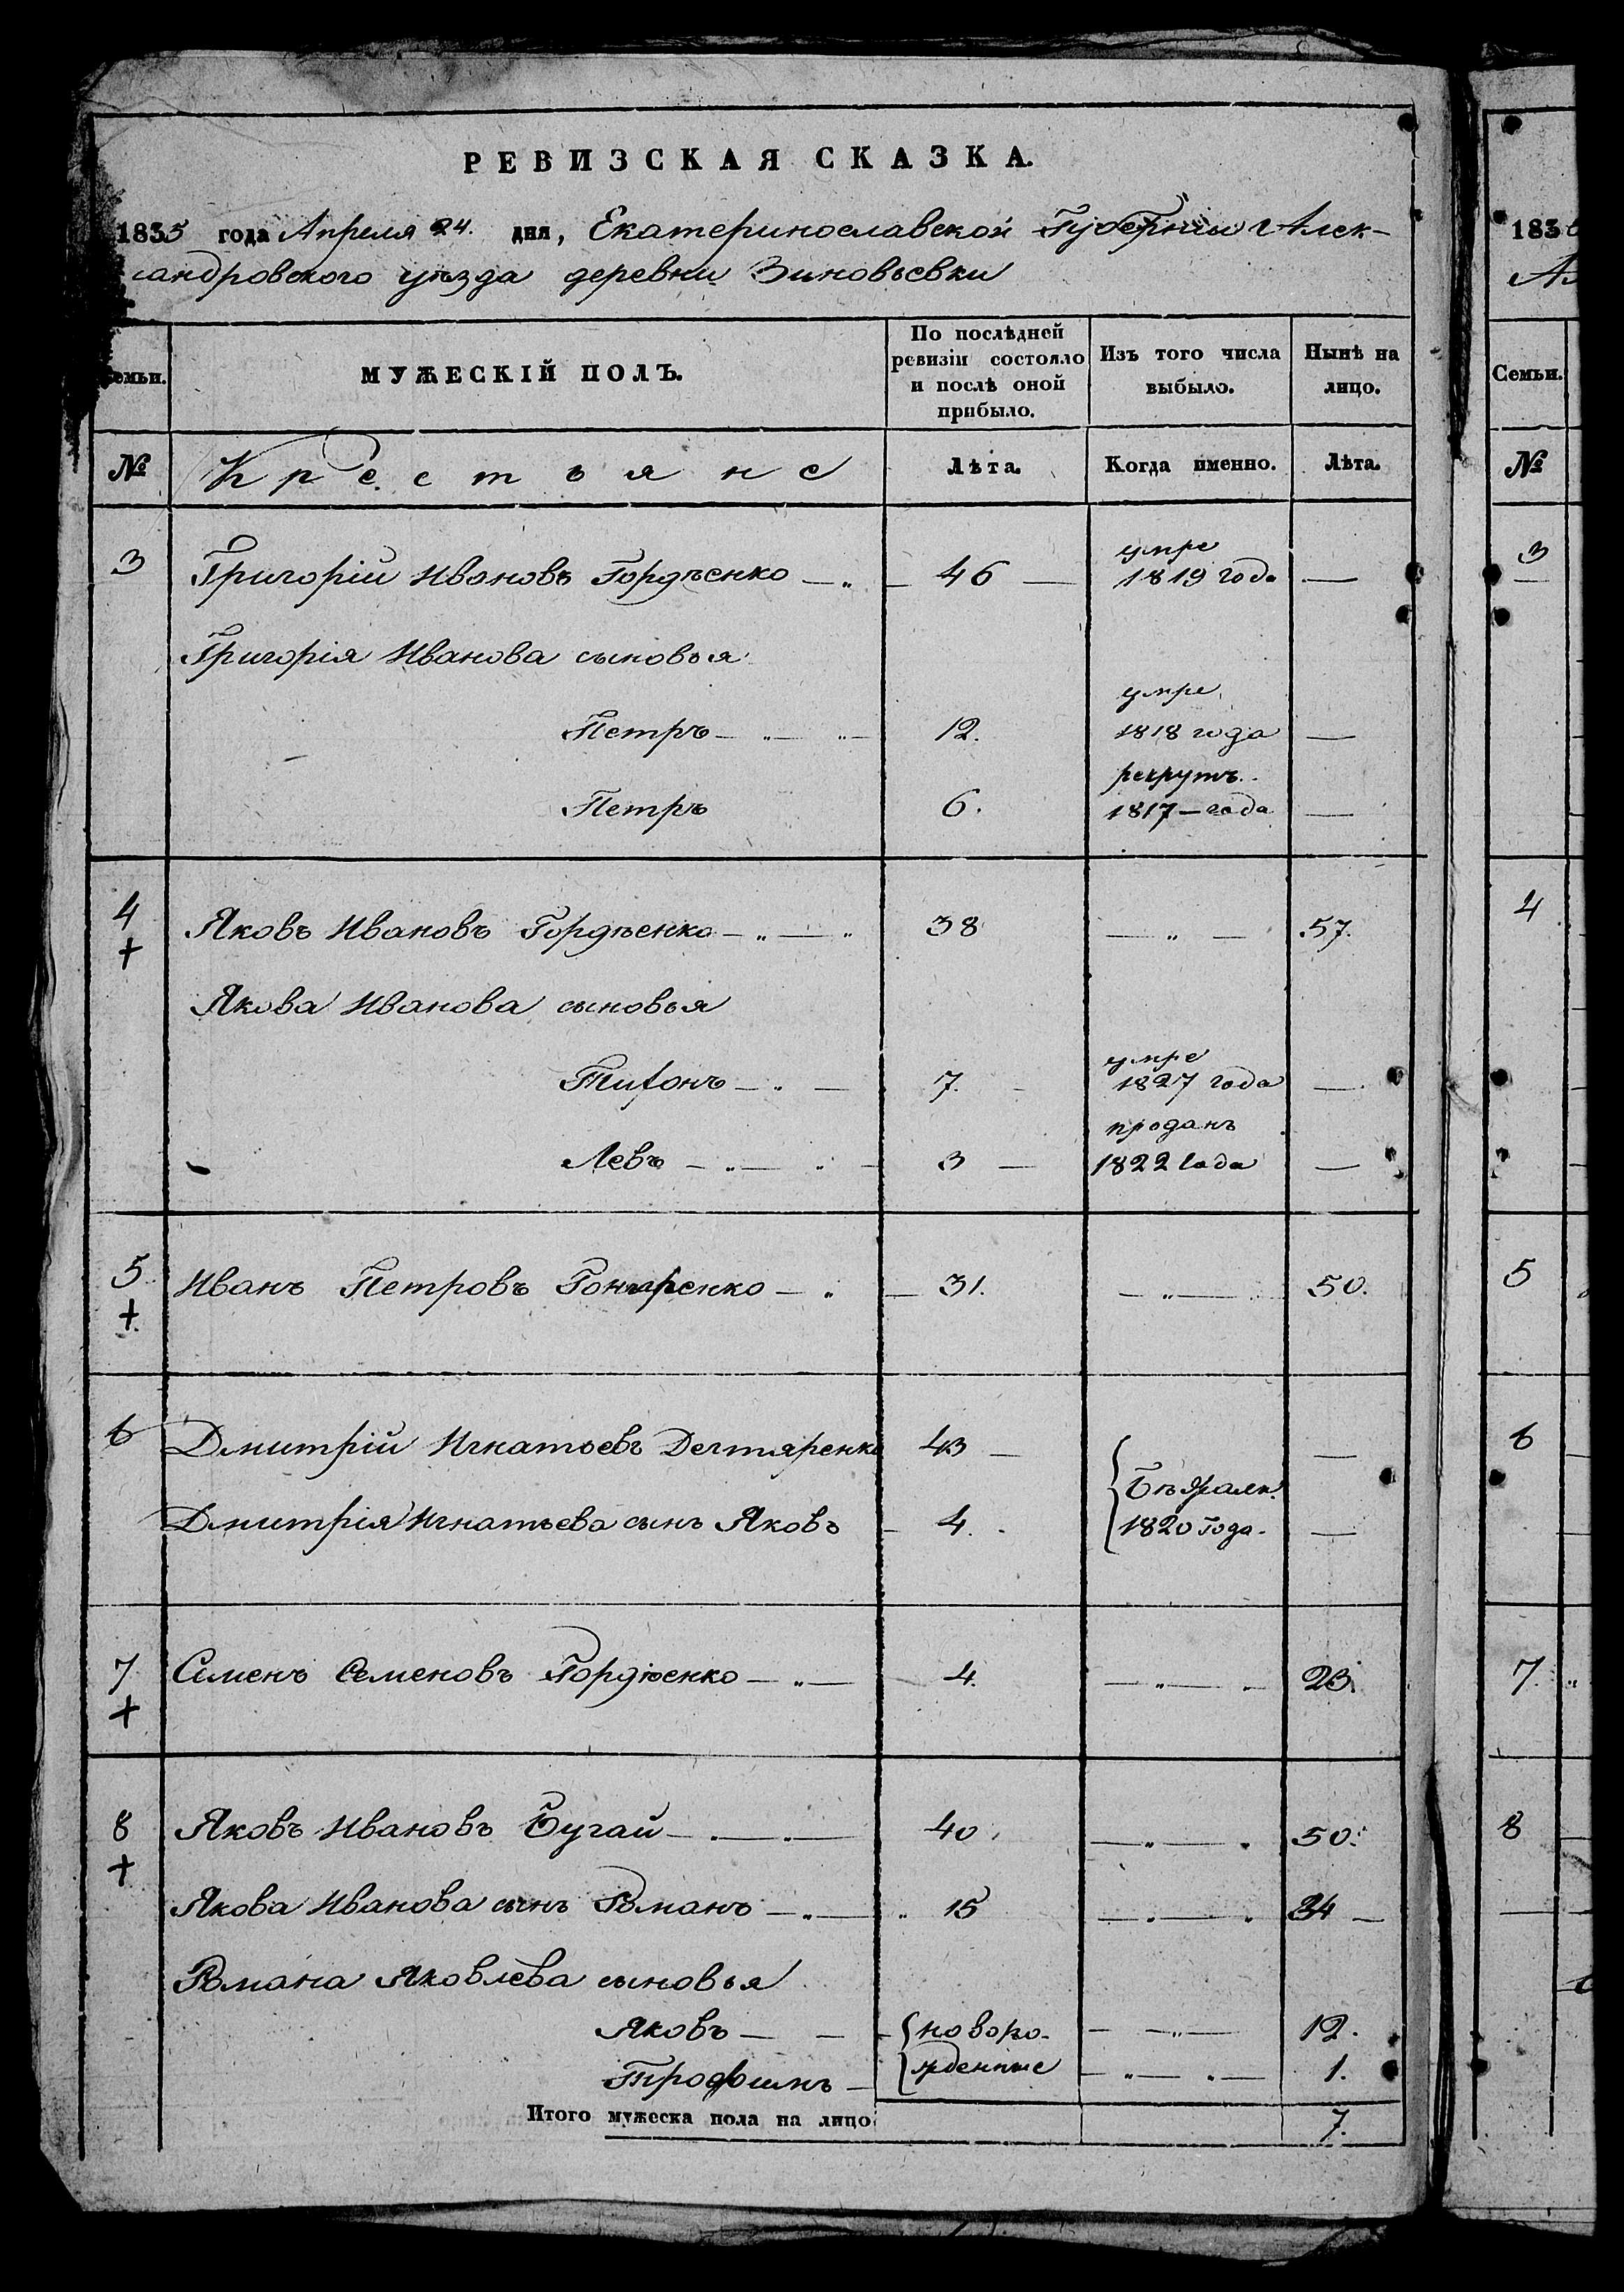 РЕВИЗСКАЯ СКАЗКА.
1835 года Апреля 24. дня, Екатеринославской Губернии Алек-
сандровского уѣзда деревни Зиновьевки
Семьи. МУЖЕСКІЙ ПОЛЪ. По послѣдней ревизіи состояло и послѣ оной прибыло. Изъ того числа выбыло. Нынѣ на лицо.
№ Крестьяне Лѣта. Когда именно. Лѣта.
3 Григорій Ивановъ Гордѣенко — 46 — умре 1819 года —
Григорія Иванова сыновья
Петръ — 12. умре 1818 года —
Петръ 6. рекрутъ 1817 — года —
4 + Яковъ Ивановъ Гордѣенко — 38 — " — 57.
Якова Иванова сыновья
Тифонъ — 7. умре 1827 года —
Левъ — 3 — проданъ 1822 года —
5 + Иванъ Петровъ Гончаренко — 31. — " — 50.
6 Дмитрій Игнатьевъ Дегтяренко 43 — —
Дмитрія Игнатьева сынъ Яковъ — 4. 1820 года. —
7 + Семенъ Семеновъ Гордѣенко — " — 4. — " — 23.
8 + Яковъ Ивановъ Бугай — 40. — " — 50.
Якова Иванова сынъ Романъ — " — 15 — " — 34 —
Романа Яковлева сыновья
Яковъ — — { новоро- — " — 12.
Трофимъ — { жденные — " — " — 1.
Итого мужеска пола на лицо 7.
183
А
Семьи.
№
3
4
5
6
7
8